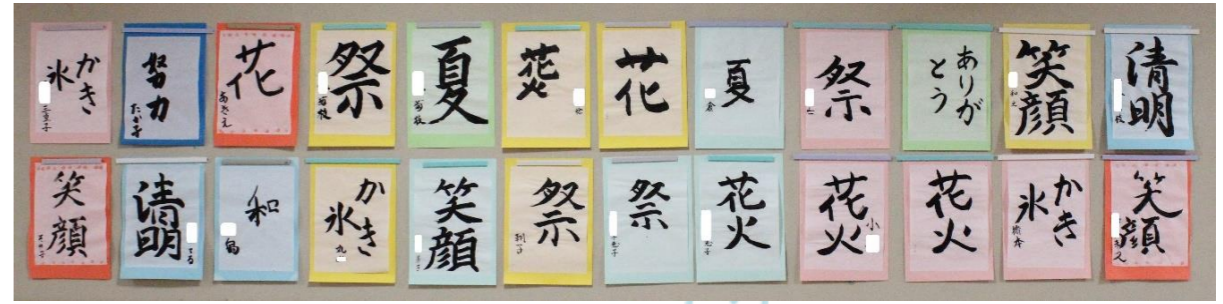 かき
氷
努力
たか子
花
祭
夏
花火
花
夏
倉
祭
ありが
とう
笑顔
清明
枝
笑顔
清明
てる
和
かき
氷
笑顔
祭
祭
花火
花火
小
花火
かき
氷
笑顔